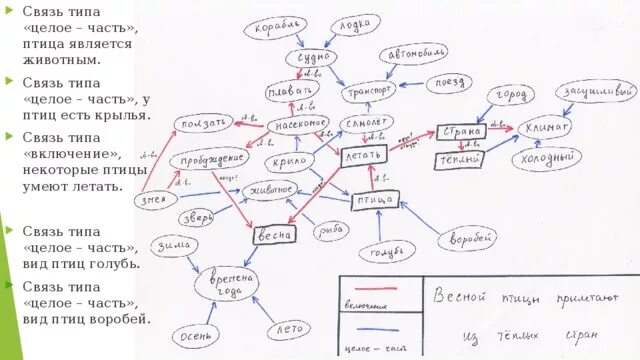 Связь типа
«целое – часть»,
птица является
животным.
Связь типа
«целое – часть», у
птиц есть крылья.
Связь типа
«включение»,
некоторые птицы
умеют летать.
Связь типа
«целое – часть»,
вид птиц голубь.
Связь типа
«целое – часть»,
вид птиц воробей.
корабль
лодка
судно
автомобиль
плавать
транспорт
поезд
город
засушливый
ползать
насекомое
самолёт
страна
климат
пробуждение
крыло
летать
тёплый
холодный
змея
животное
птица
зверь
весна
рыба
голубь
воробей
зима
времена
года
осень
лето
включение
целое – часть
Весной птицы прилетают
из тёплых стран